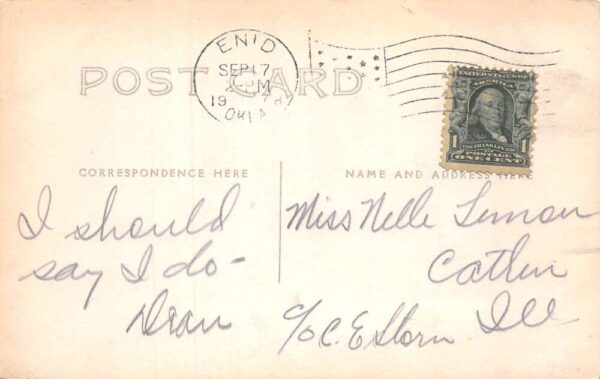 ENID
SEP 17
PM
19
OKLA
POST CARD
UNITED STATES OF AMERICA
1 FRANKLIN 1
POSTAGE
ONE CENT
CORRESPONDENCE HERE
NAME AND ADDRESS HERE
I should
say I do -
Dean
Miss Nelle Lemon
Catlin
Ill
c/o C. E